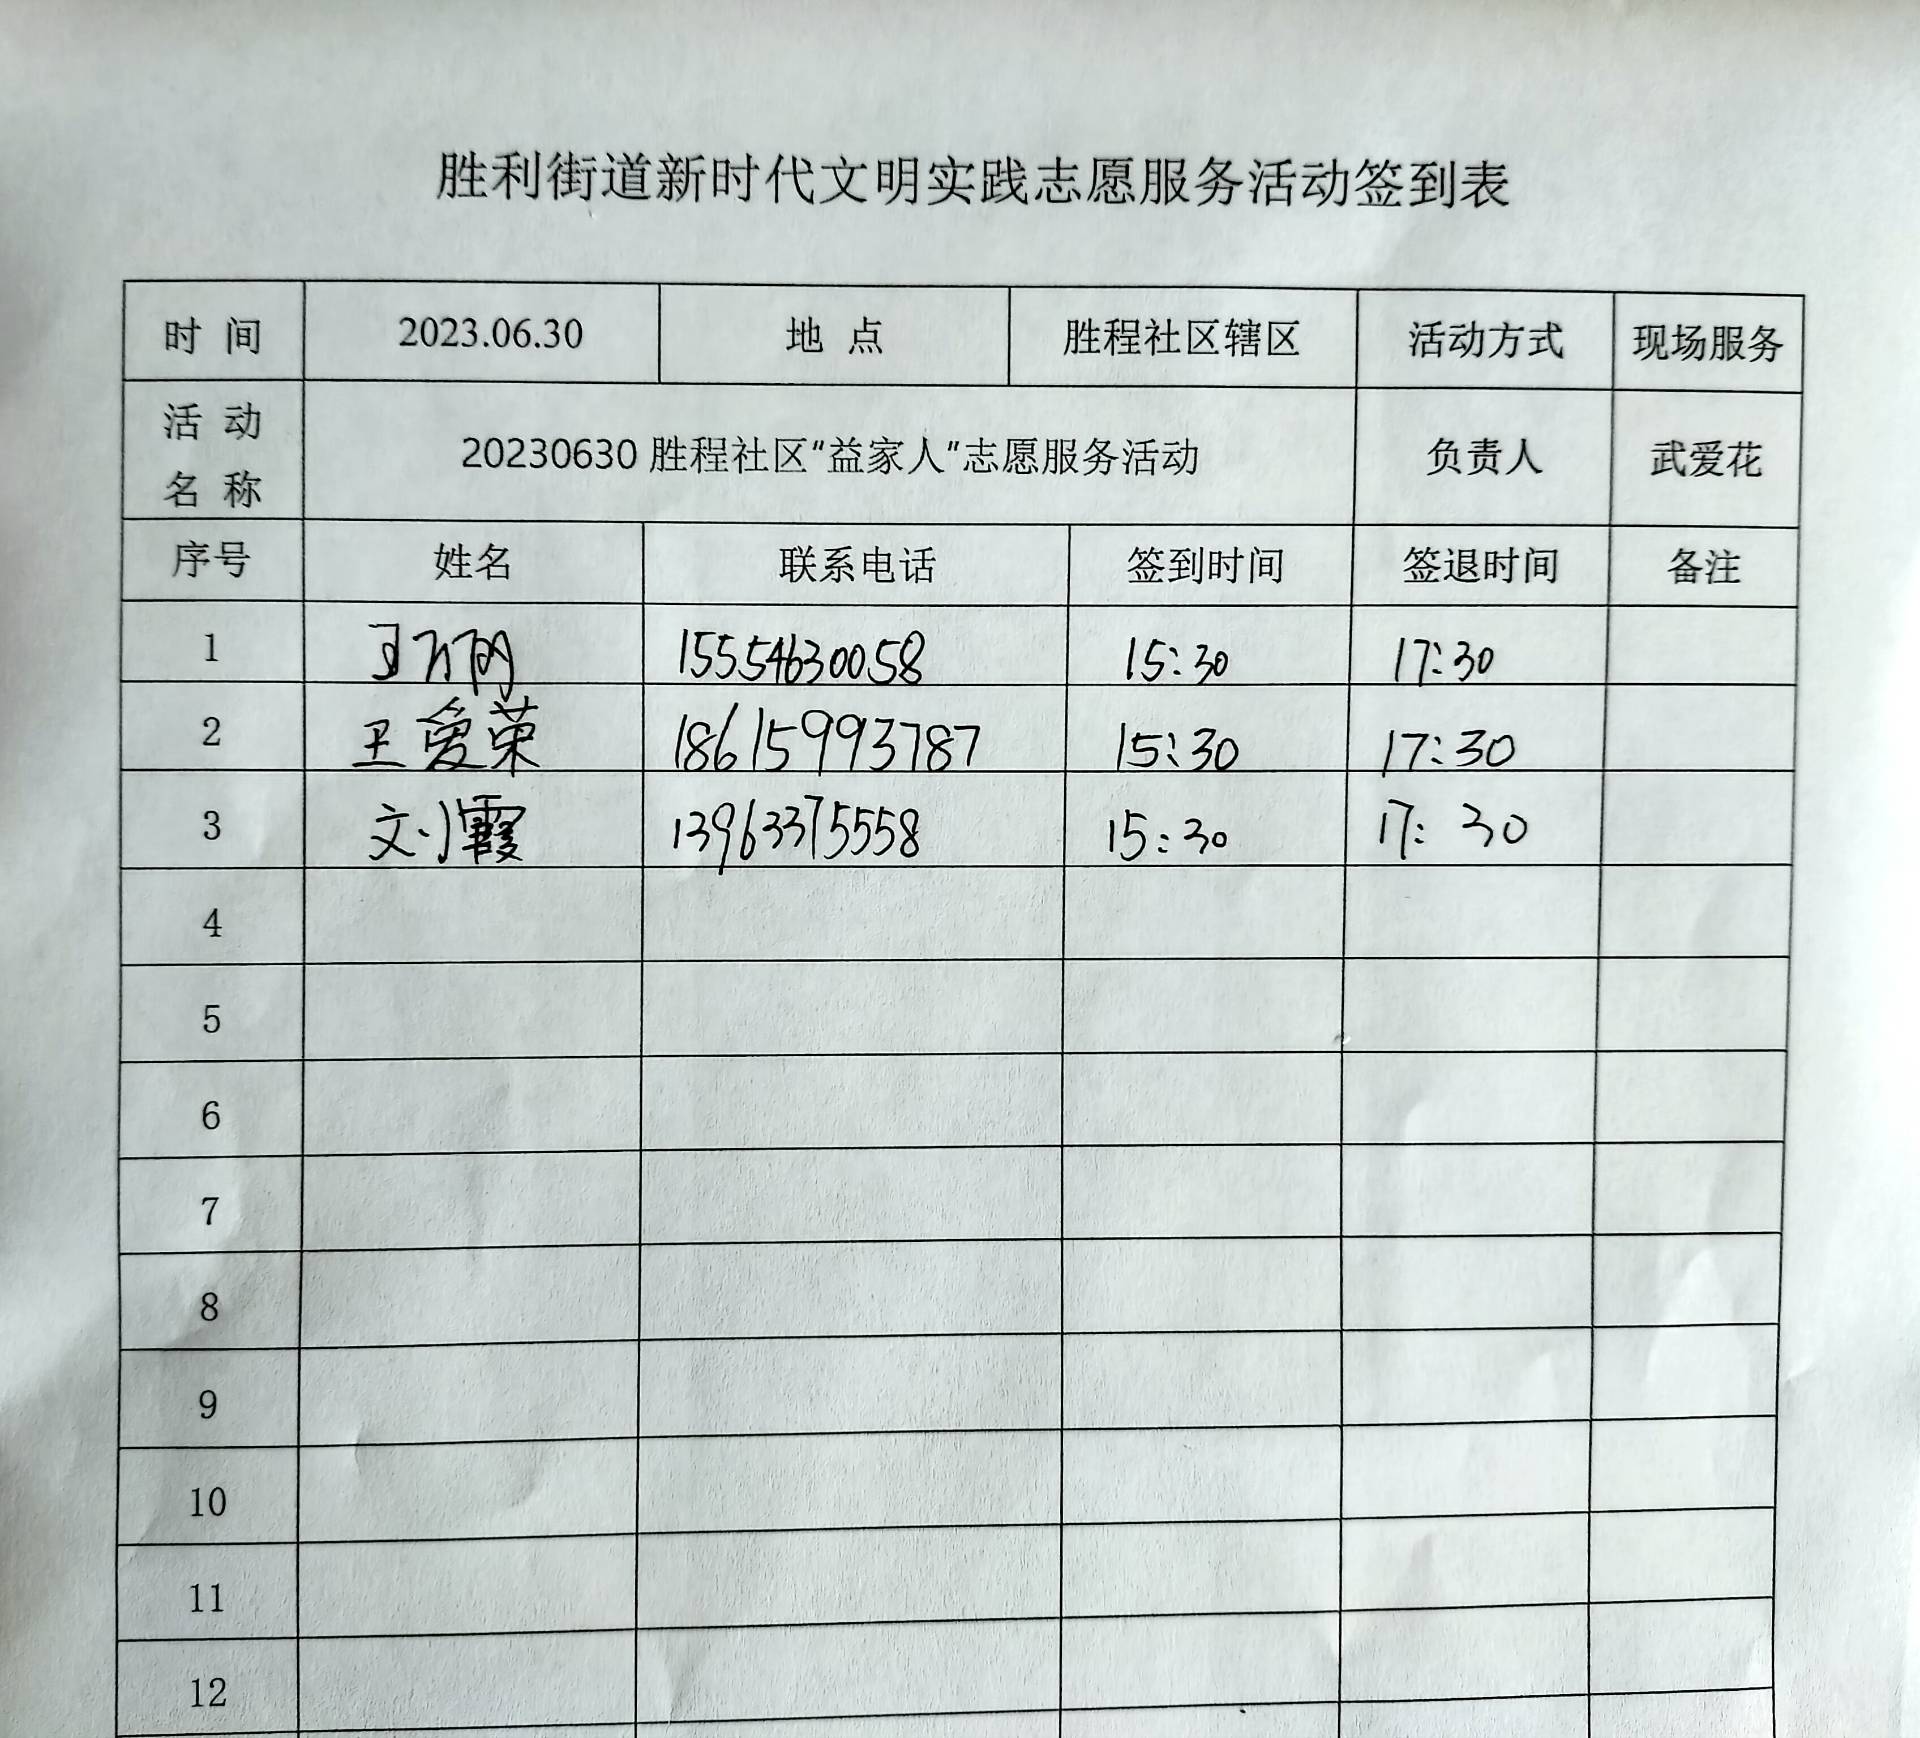 胜利街道新时代文明实践志愿服务活动签到表
时 间 2023.06.30 地 点 胜程社区辖区 活动方式 现场服务
活 动
名 称 20230630 胜程社区“益家人”志愿服务活动 负责人 武爱花
序号 姓名 联系电话 签到时间 签退时间 备注
1 15554630058 15:30 17:30
2 王爱荣 18615993787 15:30 17:30
3 刘霞 13963375558 15:30 17:30
4
5
6
7
8
9
10
11
12